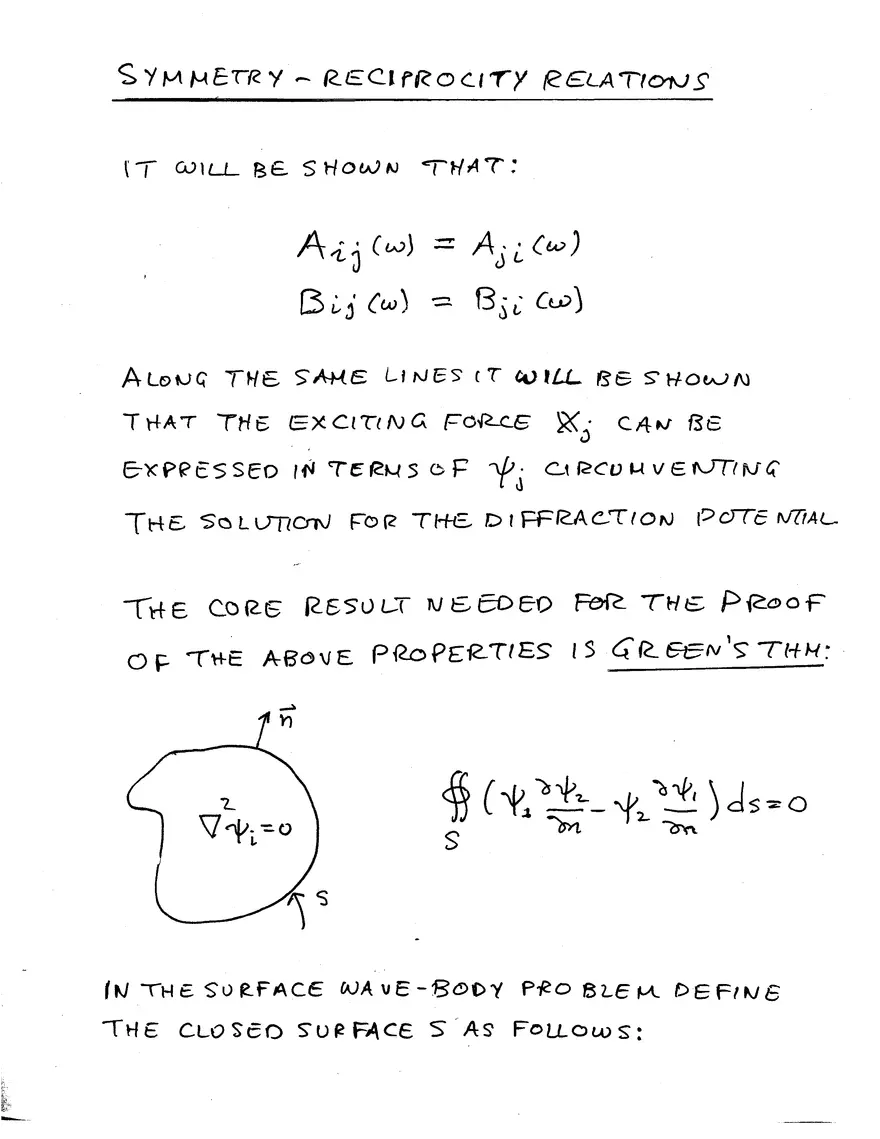 SYMMETRY - RECIPROCITY RELATIONS
IT WILL BE SHOWN THAT:
Aij(ω) = Aji(ω)
Bij(ω) = Bji(ω)
ALONG THE SAME LINES IT WILL BE SHOWN
THAT THE EXCITING FORCE 𝕏j CAN BE
EXPRESSED IN TERMS OF ψj CIRCUMVENTING
THE SOLUTION FOR THE DIFFRACTION POTENTIAL
THE CORE RESULT NEEDED FOR THE PROOF
OF THE ABOVE PROPERTIES IS GREEN'S THM:
n⃗
∇²ψi=0
S
∯S (ψ1 ∂ψ2/∂n - ψ2 ∂ψ1/∂n) ds=0
IN THE SURFACE WAVE-BODY PROBLEM DEFINE
THE CLOSED SURFACE S AS FOLLOWS: